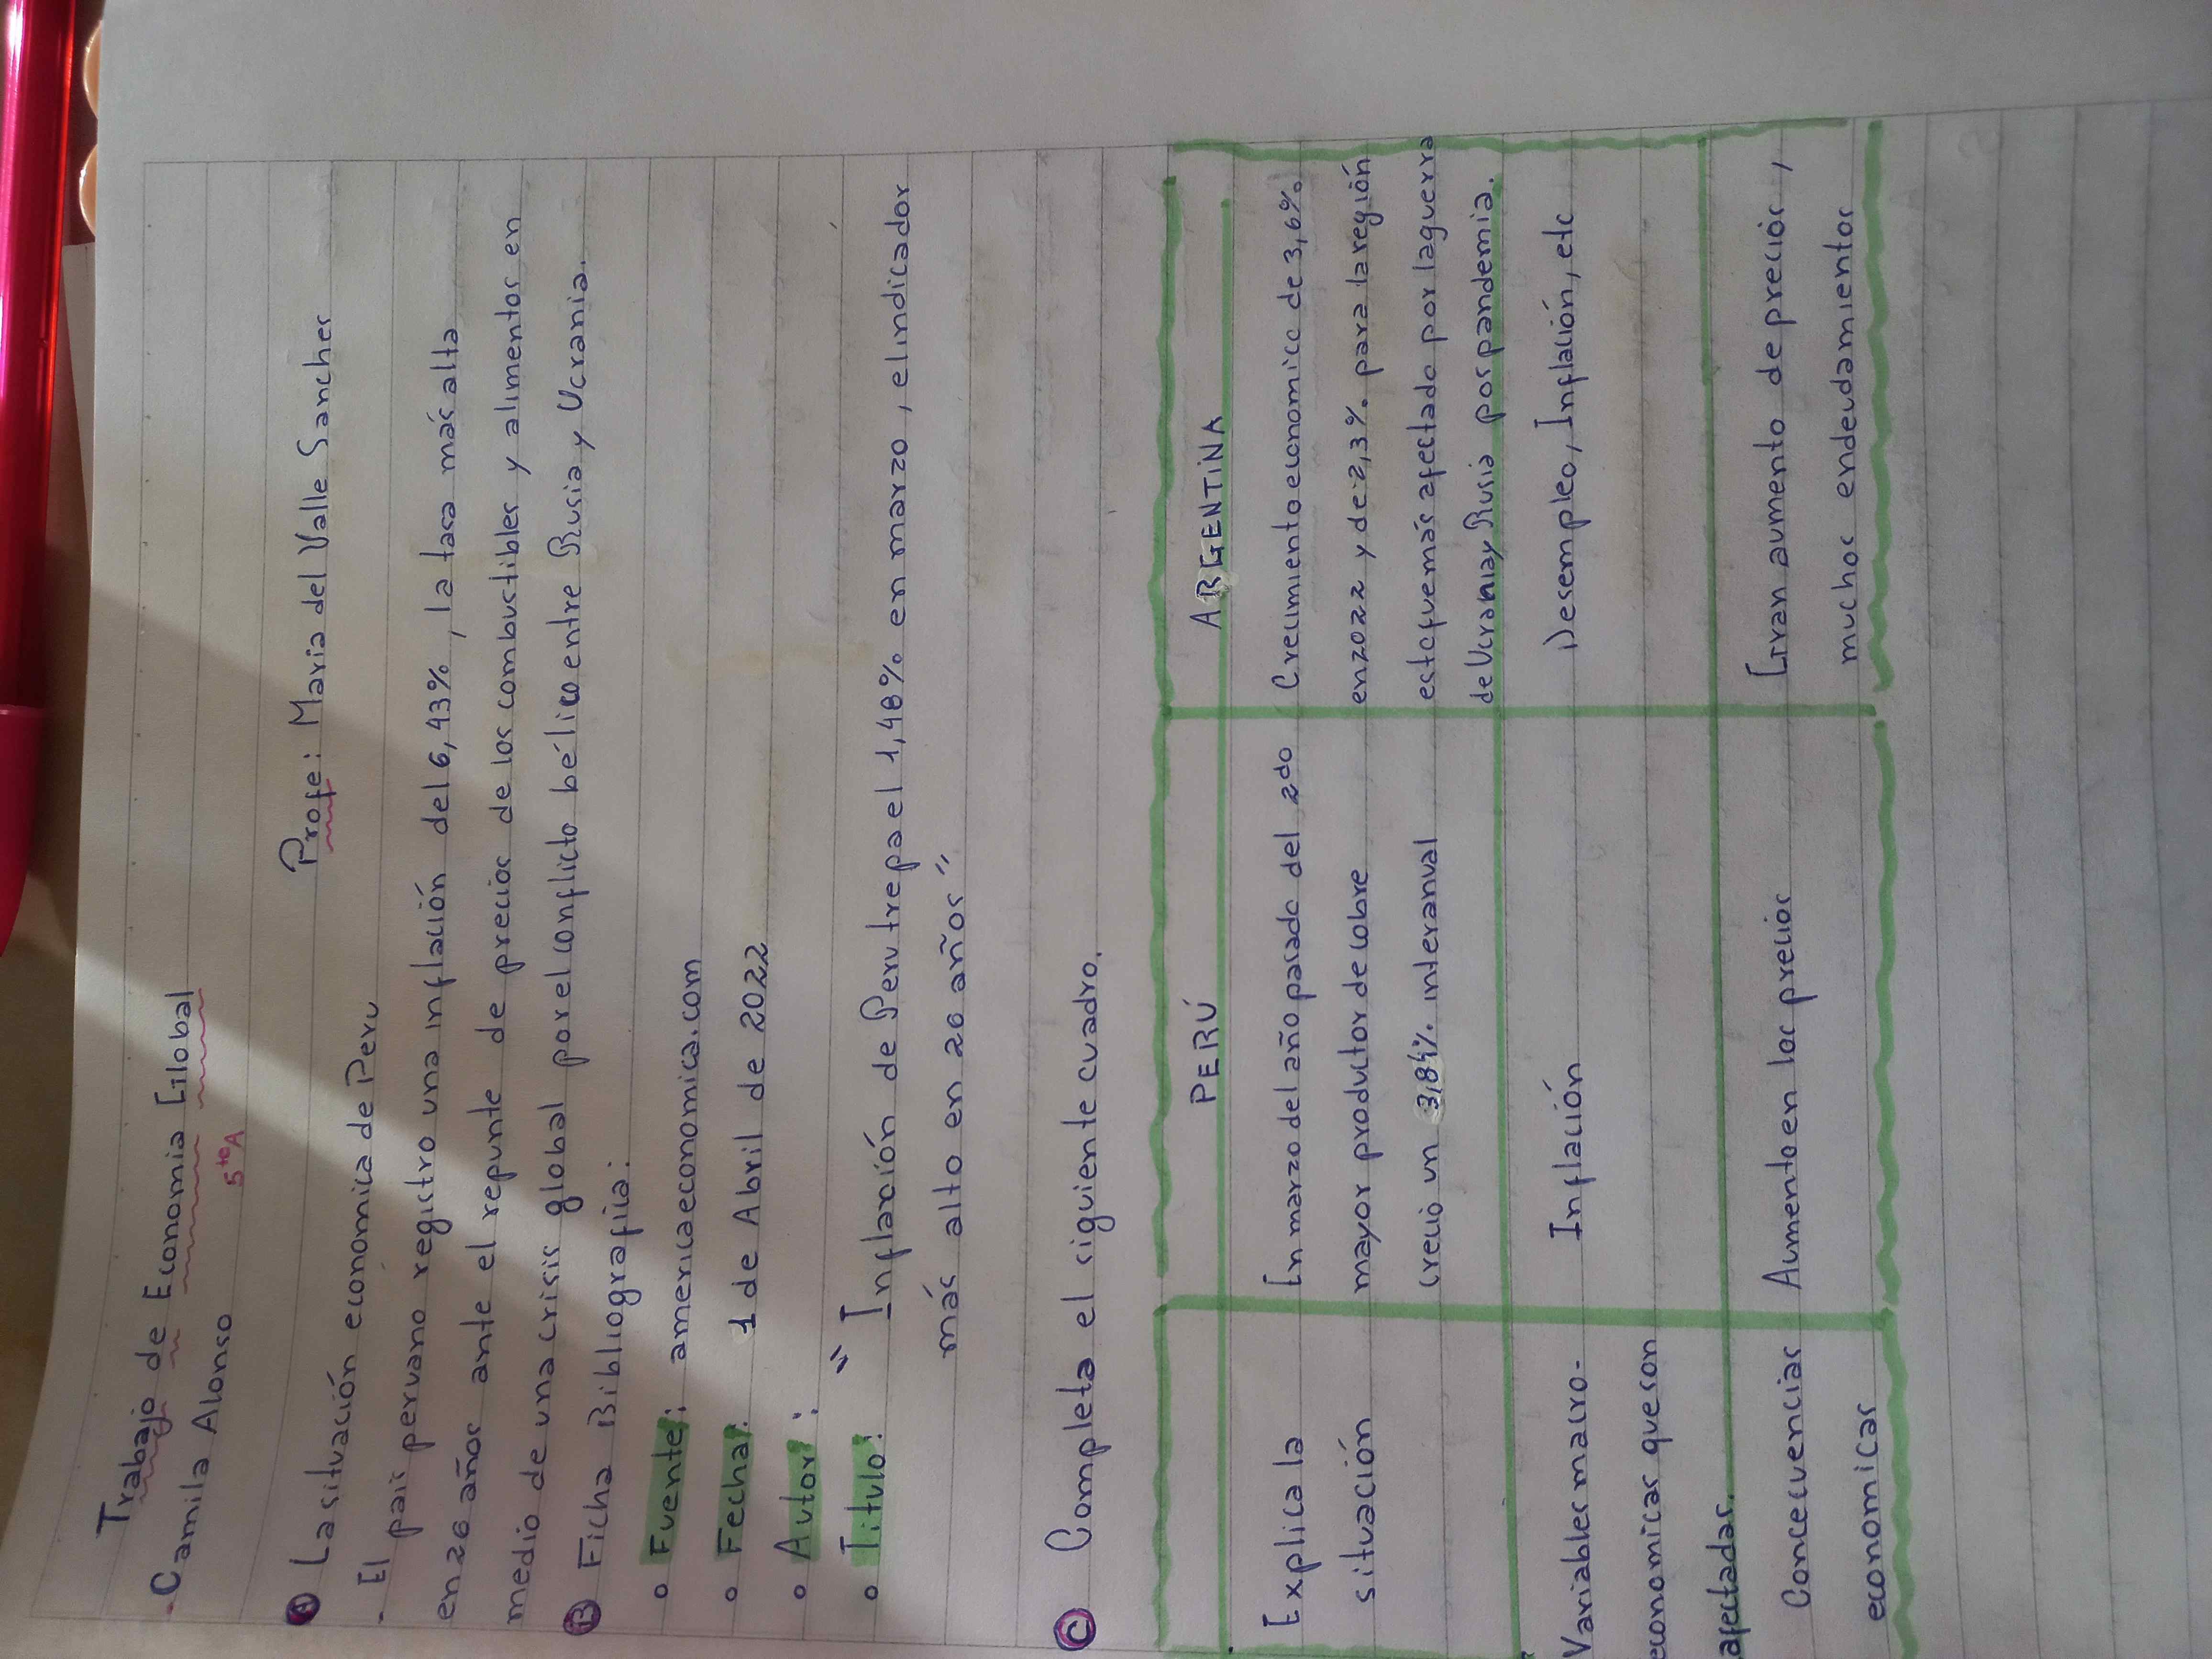 Trabajo de Economia Global
- Camila Alonso 5to A
Profe: Maria del Valle Sanches
A La situación economica de Peru
- El pais peruano registro una inflación del 6,43%, la tasa más alta
en 26 años ante el repunte de precios de los combustibles y alimentos en
medio de una crisis global por el conflicto bélico entre Rusia y Ucrania.
B Ficha Bibliografica:
o Fuente: americaeconomica.com
o Fecha: 1 de Abril de 2022
o Autor:
o Titulo: " Inflación de Peru trepa el 1,48% en marzo, el indicador
más alto en 26 años"
C Completa el siguiente cuadro.
PERÚ ARGENTINA
Explica la En marzo del año pasado del 2do Crecimiento economico de 3,6%
situación mayor productor de cobre en 2022 y de 2,3% para la región
crecio un 3,84% interanual esto fue más afectado por la guerra
de Ucrania y Rusia pos pandemia.
Variables macro- Inflación Desempleo, Inflación, etc
economicas que son
afectadas.
Concecuencias Aumento en los precios Gran aumento de precios,
economicas muchos endeudamientos